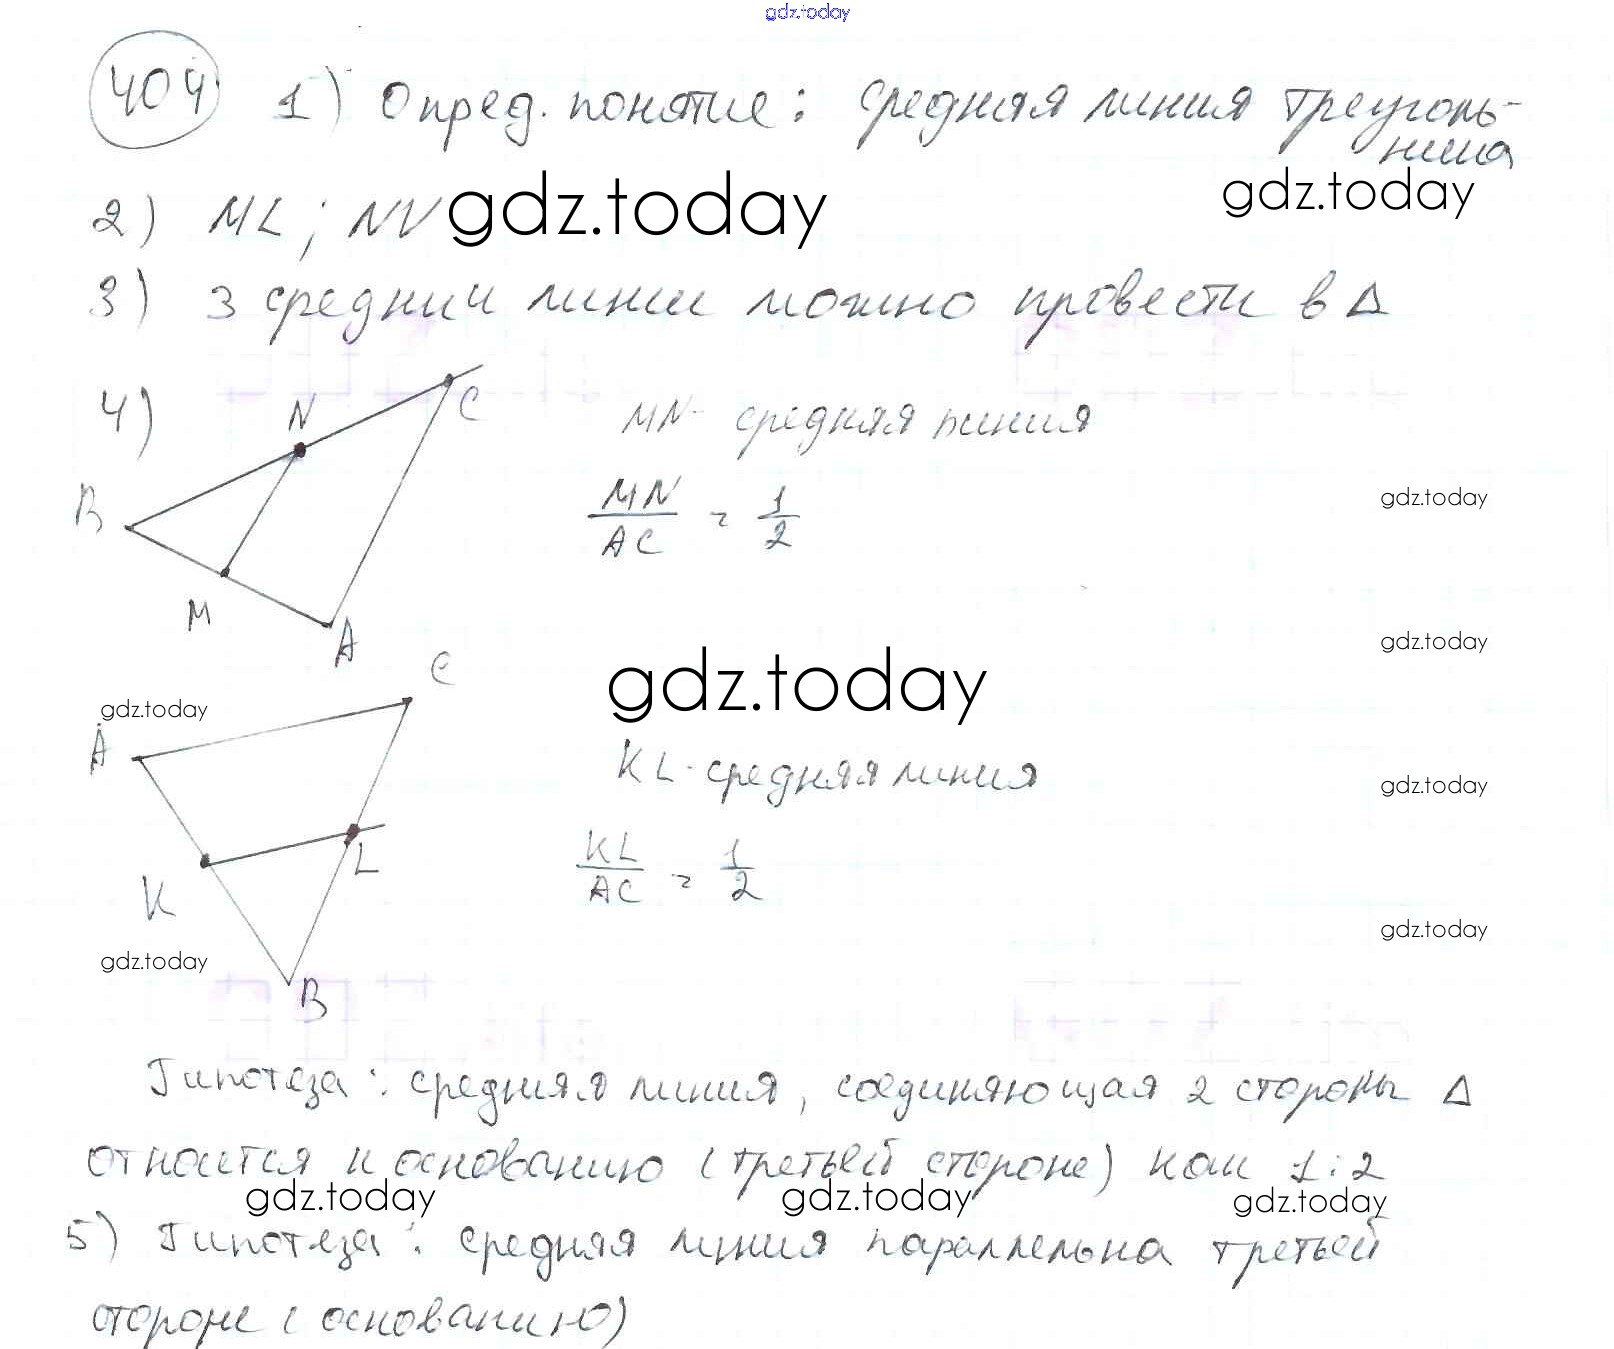 gdz.today
404 1) Опред. понятие: средняя линия треуголь-
ника
gdz.today
2) ML; NV gdz.today
3) 3 средний линии можно провести в Δ
4) N C MN - средняя линия
B MN/AC = 1/2 gdz.today
M A gdz.today
C gdz.today
gdz.today
A KL - средняя линия gdz.today
K L KL/AC = 1/2
gdz.today
gdz.today
B
Гипотеза: средняя линия, соединяющая 2 стороны Δ
относится к основанию (третьей стороне) как 1:2
gdz.today gdz.today gdz.today
5) Гипотеза: средняя линия параллельна третьей
стороне (основанию)